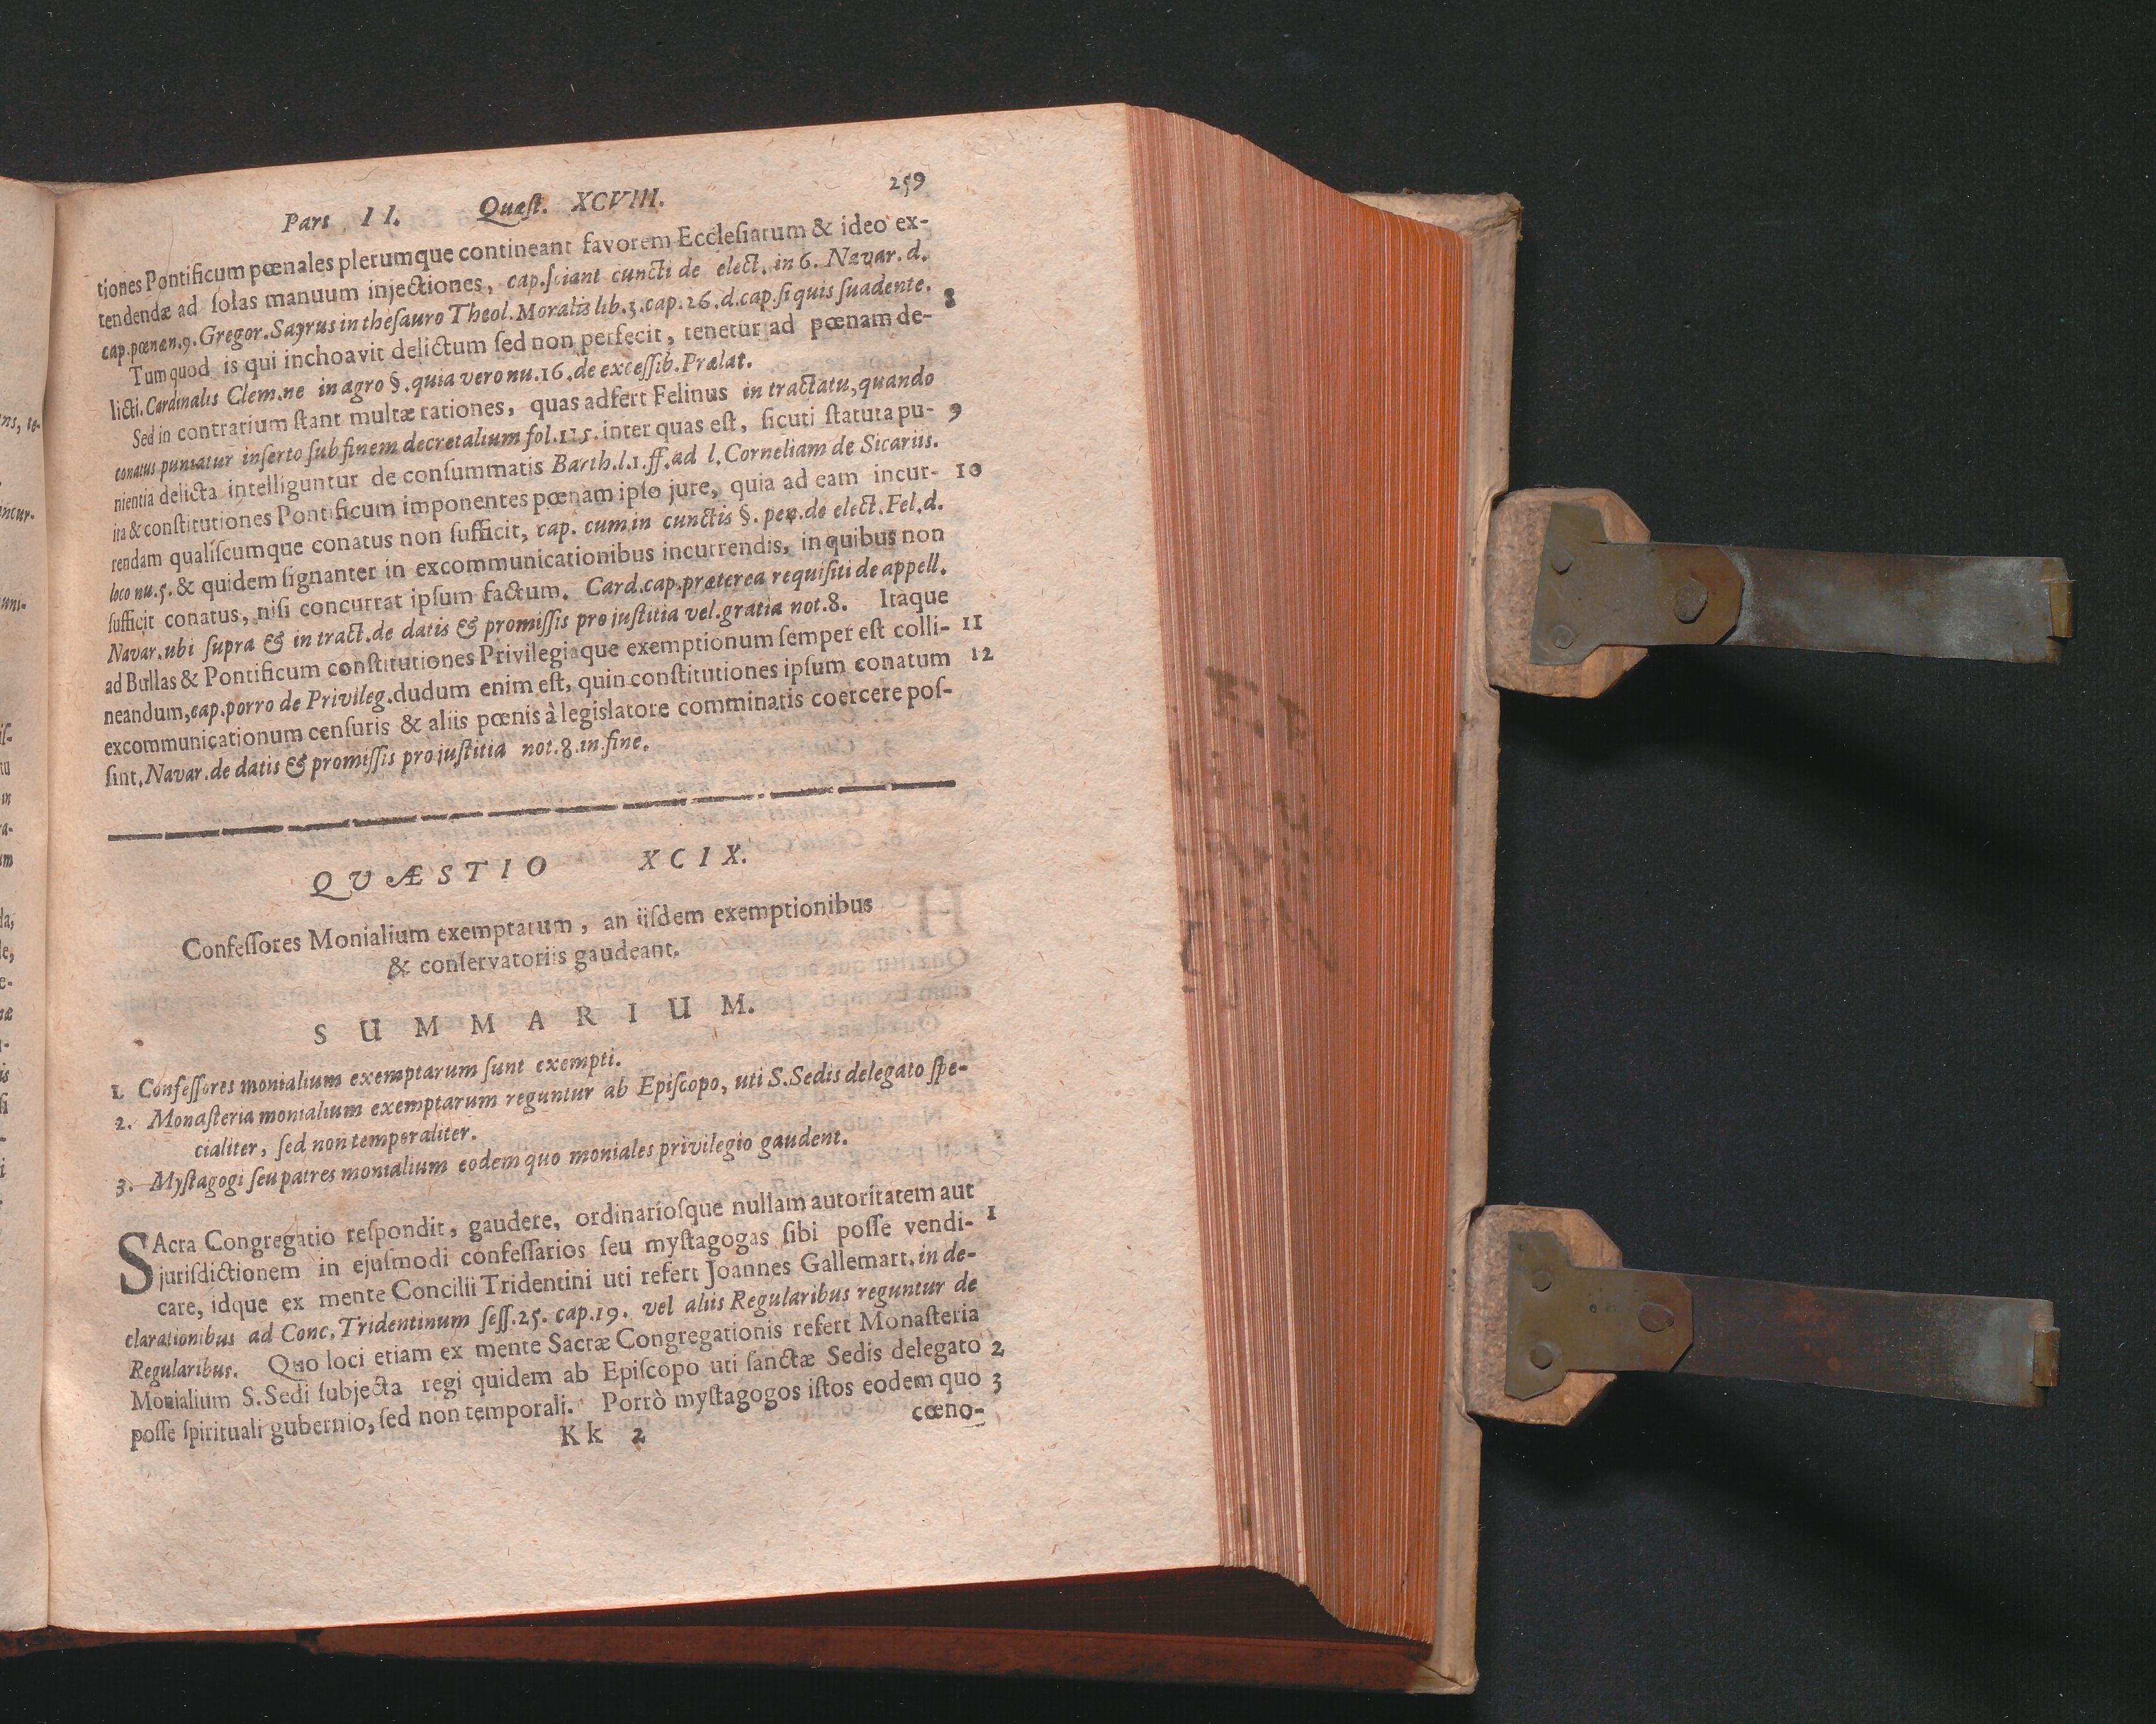 Pars II. Quæſt. XCVIII. 259
tiones Pontificum pœnales plerumque contineant favorem Eccleſiarum & ideo ex-
tendendæ ad ſolas manuum injectiones, cap.ſciant cuncti de elect. in 6. Navar. d.
cap.pœnæ n.9. Gregor. Sayrus in theſauro Theol. Moralis lib.3. cap.26. d.cap.ſi quis ſuadente.
Tum quod is qui inchoavit delictum ſed non perfecit, tenetur ad pœnam de- 8
licti. Cardinalis Clem.ne in agro §. quia vero nu.16. de exceſſib. Prælat.
Sed in contrarium ſtant multæ rationes, quas adfert Felinus in tractatu, quando
conatus puniatur inſerto ſub finem decretalium fol.115. inter quas eſt, ſicuti ſtatuta pu- 9
nientia delicta intelliguntur de conſummatis Barth. l.1. ff. ad l. Corneliam de Sicariis.
ita & conſtitutiones Pontificum imponentes pœnam ipſo jure, quia ad eam incur- 10
rendam qualiſcumque conatus non ſufficit, cap. cum in cunctis §. pen. de elect. Fel. d.
loco nu.5. & quidem ſignanter in excommunicationibus incurrendis, in quibus non
ſufficit conatus, niſi concurrat ipſum factum. Card. cap. præterea requiſiti de appell.
Navar. ubi ſupra & in tract. de datis & promiſſis pro juſtitia vel. gratia not.8. Itaque
ad Bullas & Pontificum conſtitutiones Privilegiaque exemptionum ſemper eſt colli- 11
neandum, cap. porro de Privileg. dudum enim eſt, quin conſtitutiones ipſum conatum 12
excommunicationum cenſuris & aliis pœnis à legislatore comminatis coercere poſ-
ſint. Navar. de datis & promiſſis pro juſtitia not.8. in fine.
QUÆSTIO XCIX.
Confeſſores Monialium exemptarum, an iiſdem exemptionibus
& conſervatoriis gaudeant.
SUMMARIUM.
1. Confeſſores monialium exemptarum ſunt exempti.
2. Monaſteria monialium exemptarum reguntur ab Epiſcopo, uti S. Sedis delegato ſpe-
cialiter, ſed non temporaliter.
3. Myſtagogi ſeu patres monialium eodem quo moniales privilegio gaudent.
SAcra Congregatio reſpondit, gaudere, ordinarioſque nullam autoritatem aut 1
jurisdictionem in ejuſmodi confeſſarios ſeu myſtagogas ſibi poſſe vendi-
care, idque ex mente Concilii Tridentini uti refert Joannes Gallemart. in de-
clarationibus ad Conc. Tridentinum ſeſſ.25. cap.19. vel aliis Regularibus reguntur de
Regularibus. Quo loci etiam ex mente Sacræ Congregationis refert Monaſteria
Monialium S. Sedi ſubjecta regi quidem ab Epiſcopo uti ſanctæ Sedis delegato 2
poſſe ſpirituali gubernio, ſed non temporali. Porrò myſtagogos iſtos eodem quo 3
Kk 2 cœno-